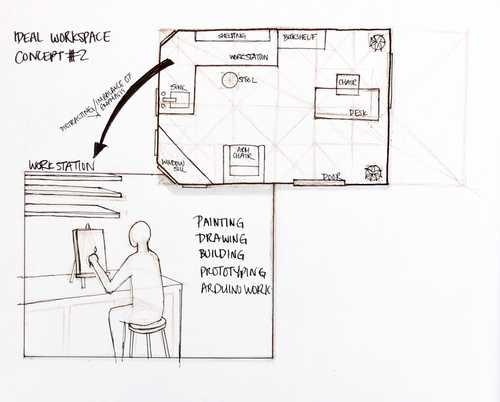 IDEAL WORKSPACE
CONCEPT #2
SHELVING
BOOKSHELF
WORKSTATION
STOOL
SINK
CHAIR
DESK
ARM
CHAIR
WINDOW
SILL
DOOR
WORKSTATION
PAINTING
DRAWING
BUILDING
PROTOTYPING
ARDUINO WORK